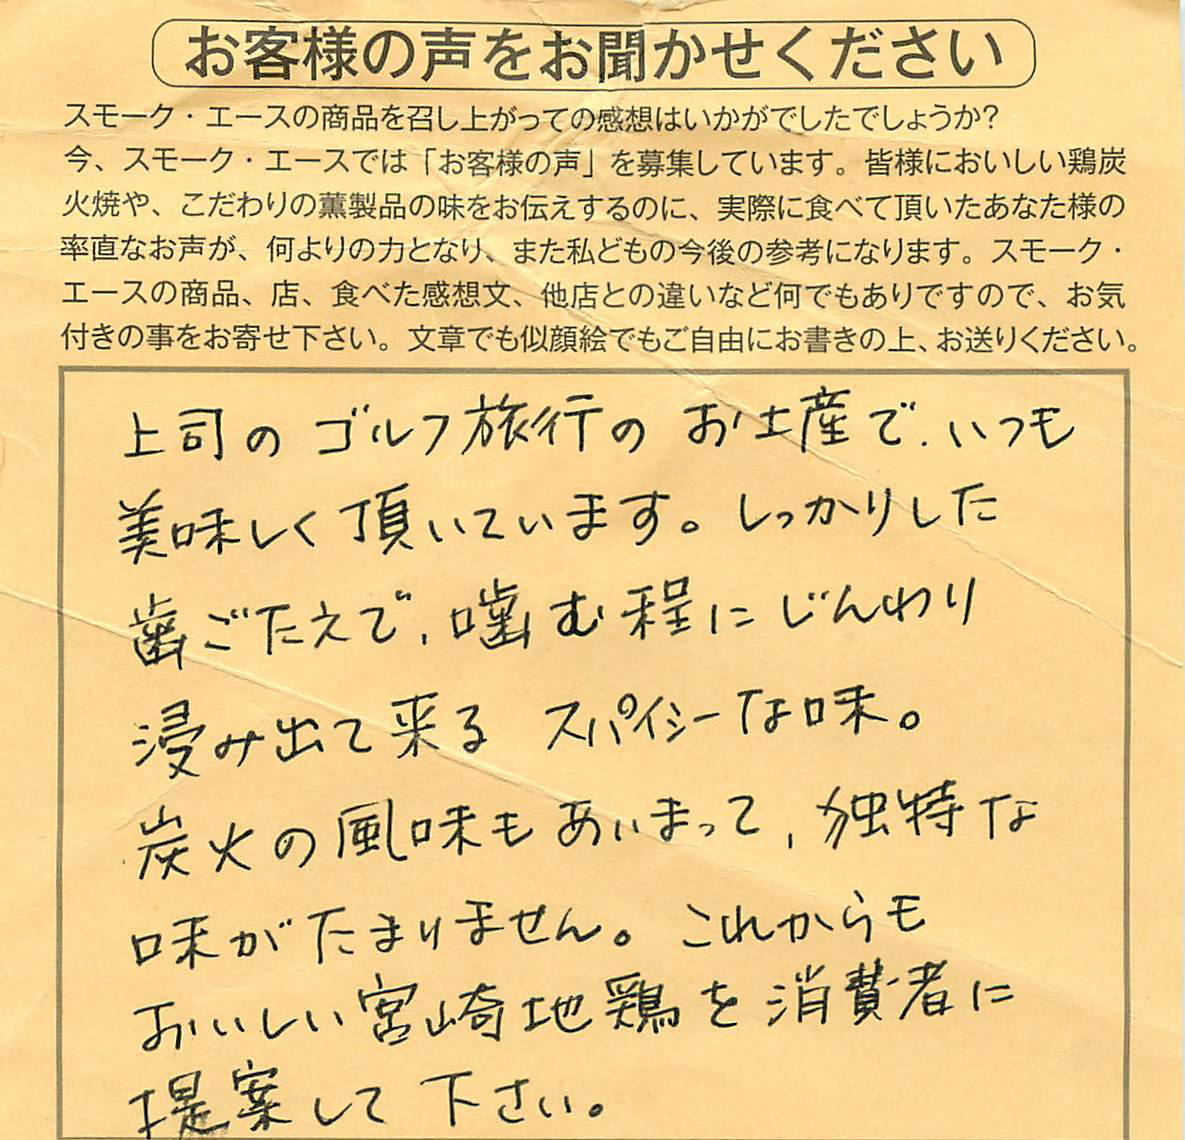 お客様の声をお聞かせください
スモーク・エースの商品を召し上がっての感想はいかがでしたでしょうか?
今、スモーク・エースでは「お客様の声」を募集しています。皆様においしい鶏炭
火焼や、こだわりの薫製品の味をお伝えするのに、実際に食べて頂いたあなた様の
率直なお声が、何よりの力となり、また私どもの今後の参考になります。スモーク・
エースの商品、店、食べた感想文、他店との違いなど何でもありですので、お気
付きの事をお寄せ下さい。文章でも似顔絵でもご自由にお書きの上、お送りください。
上司のゴルフ旅行のお土産で、いつも
美味しく頂いています。しっかりした
歯ごたえで、噛む程にじんわり
浸み出て来るスパイシーな味。
炭火の風味もあいまって、独特な
味がたまりません。これからも
おいしい宮崎地鶏を消費者に
提案して下さい。